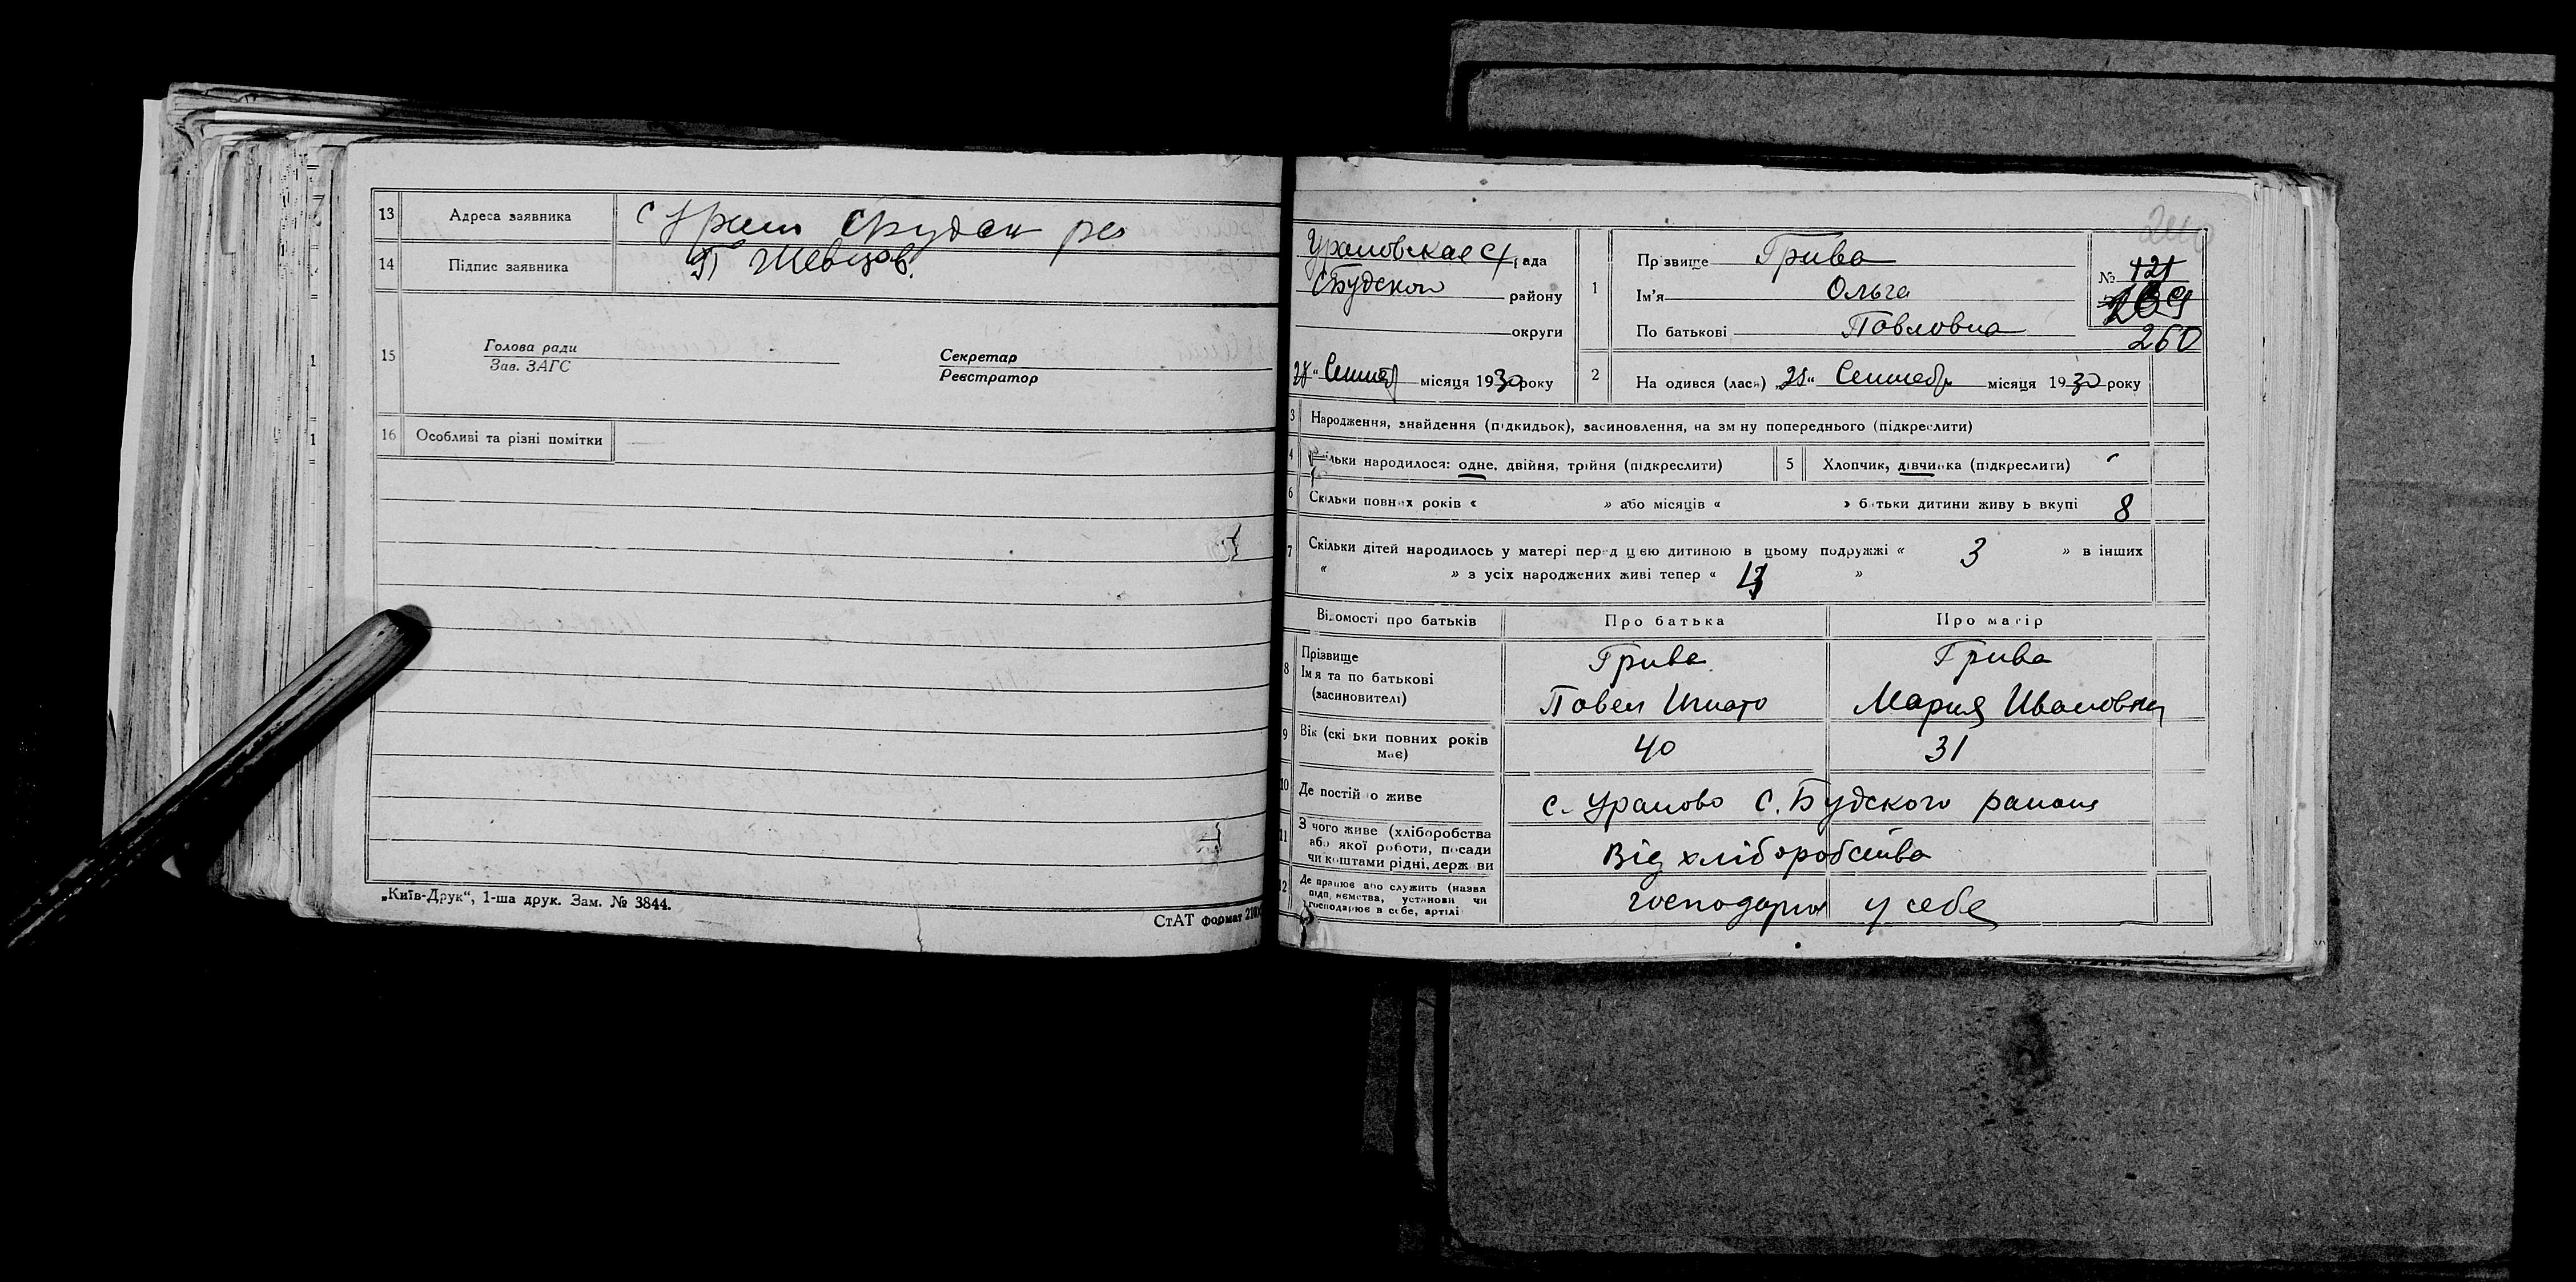 13 Адреса заявника
14 Підпис заявника Шевцов.
15 Голова ради
Зав. ЗАГС
Секретар
Реєстратор
16 Особливі та різні помітки
„Київ-Друк“, 1-ша друк. Зам. № 3844.
СтАТ формат 210
рада
С Будского району
округи
28 " Сентяб місяця 1930 року
1 Прізвище Грива
Ім'я Ольга
По батькові Павловна
№ 121
269
260
2 На одився (лася) „25“ Сентебр місяця 1930 року
3 Народження, знайдення (підкидьок), засиновлення, на зм ну попереднього (підкреслити)
4 ільки народилося: одне, двійня, трійня (підкреслити)
5 Хлопчик, дівчинка (підкреслити)
6 Скільки повних років « » або місяців « » батьки дитини живу ь вкупі 8
7 Скільки дітей народилось у матері перед цією дитиною в цьому подружжі « 3 » в інших
« » з усіх народжених живі тепер « »
Відомості про батьків Про батька Про матір
8 Прізвище Грива Грива
Ім'я та по батькові Павел Игнато Мария Ивановна
(засиновителі)
9 Вік (скі ьки повних років 40 31
має)
10 Де постій о живе с. Урамово С. Будского района
11 З чого живе (хліборобства
або якої роботи, посади Від хліборобства
чи коштами рідні, держ ви
12 Де працює або служить (назва
підп иємства, установи чи господарюя у себе
господарює в себе, артілі